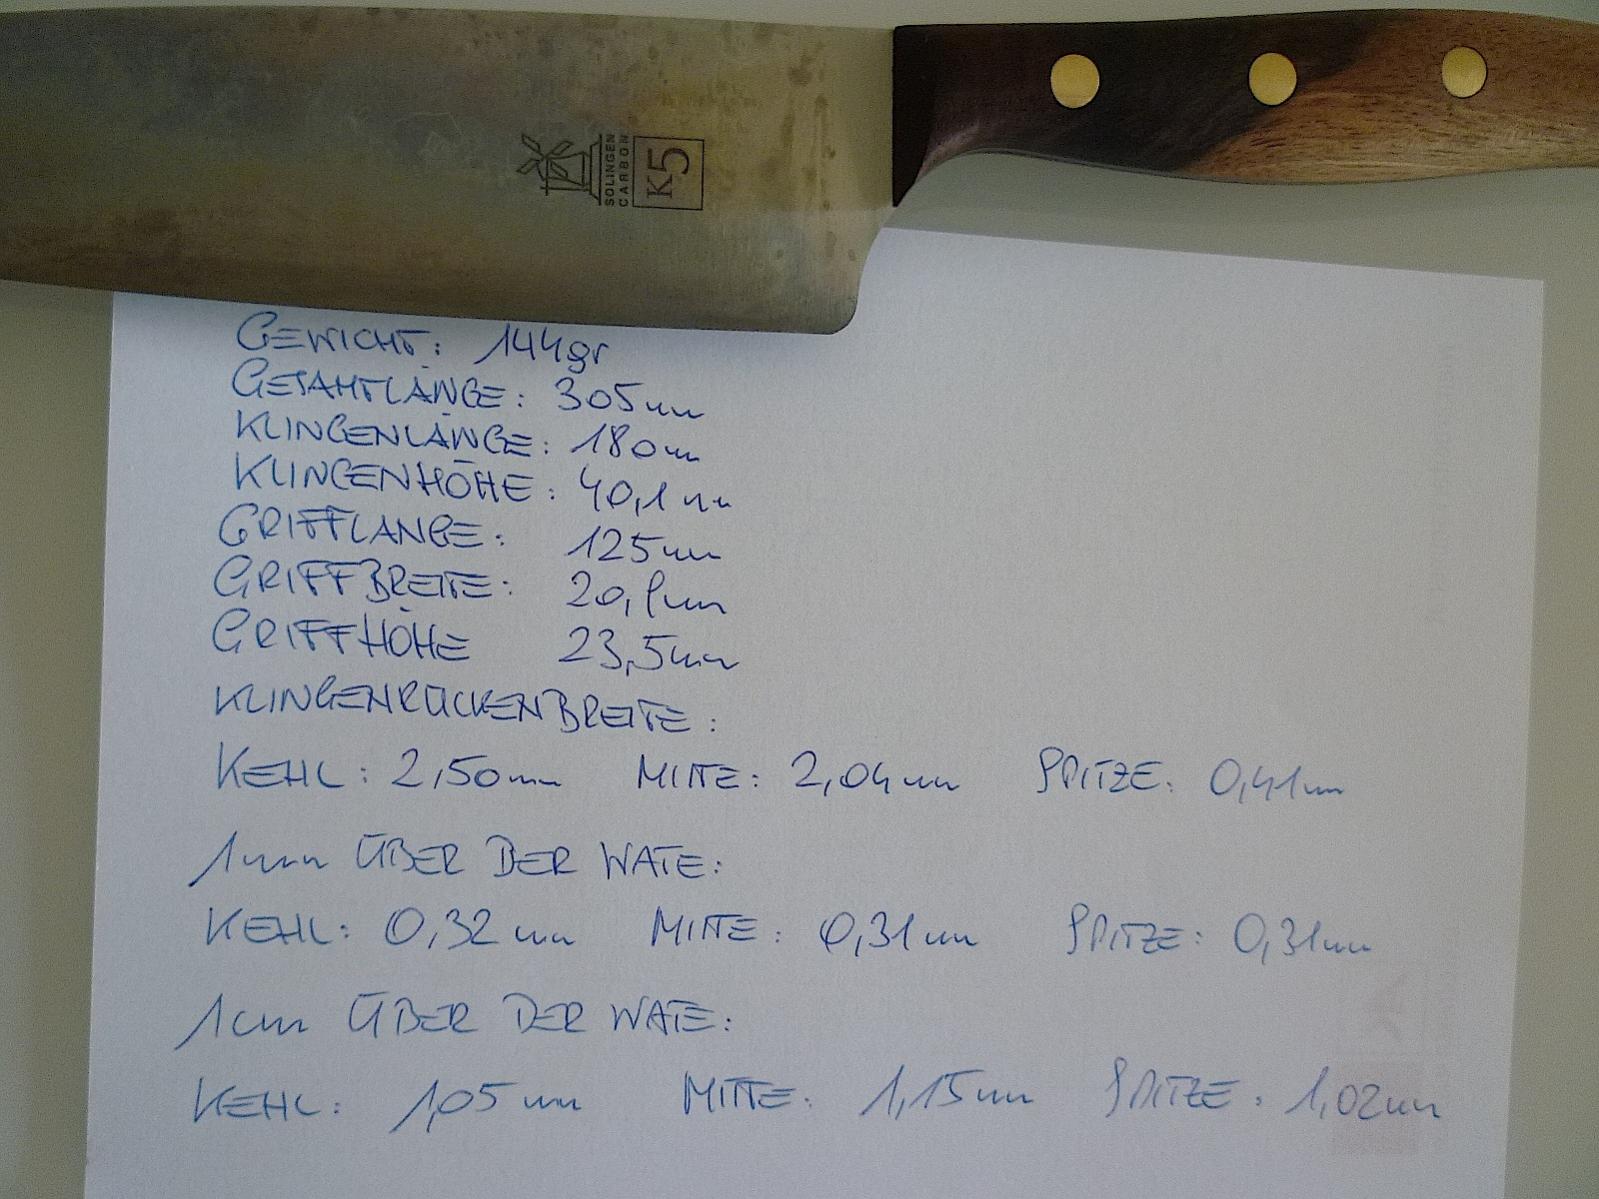 SOLINGEN
CARBON
K5
GEWICHT: 144gr
GESAMTLÄNGE: 305mm
KLINGENLÄNGE: 180mm
KLINGENHÖHE: 40,1mm
GRIFFLÄNGE: 125mm
GRIFFBREITE:
GRIFFHÖHE 23,5mm
KLINGENRÜCKENBREITE:
KEHL: 2,50mm MITTE: 2,04mm SPITZE: 0,41mm
1mm ÜBER DER WATE:
KEHL: 0,32mm MITTE: 0,31mm SPITZE: 0,31mm
1cm ÜBER DER WATE:
KEHL: 1,05mm MITTE: 1,15mm SPITZE: 1,02mm